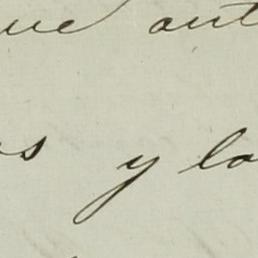 ue aut
s y la